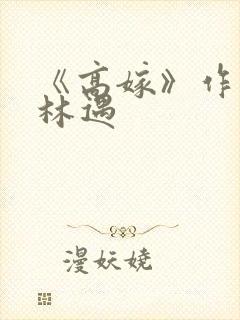 《高嫁》作
林遇
漫妖娆